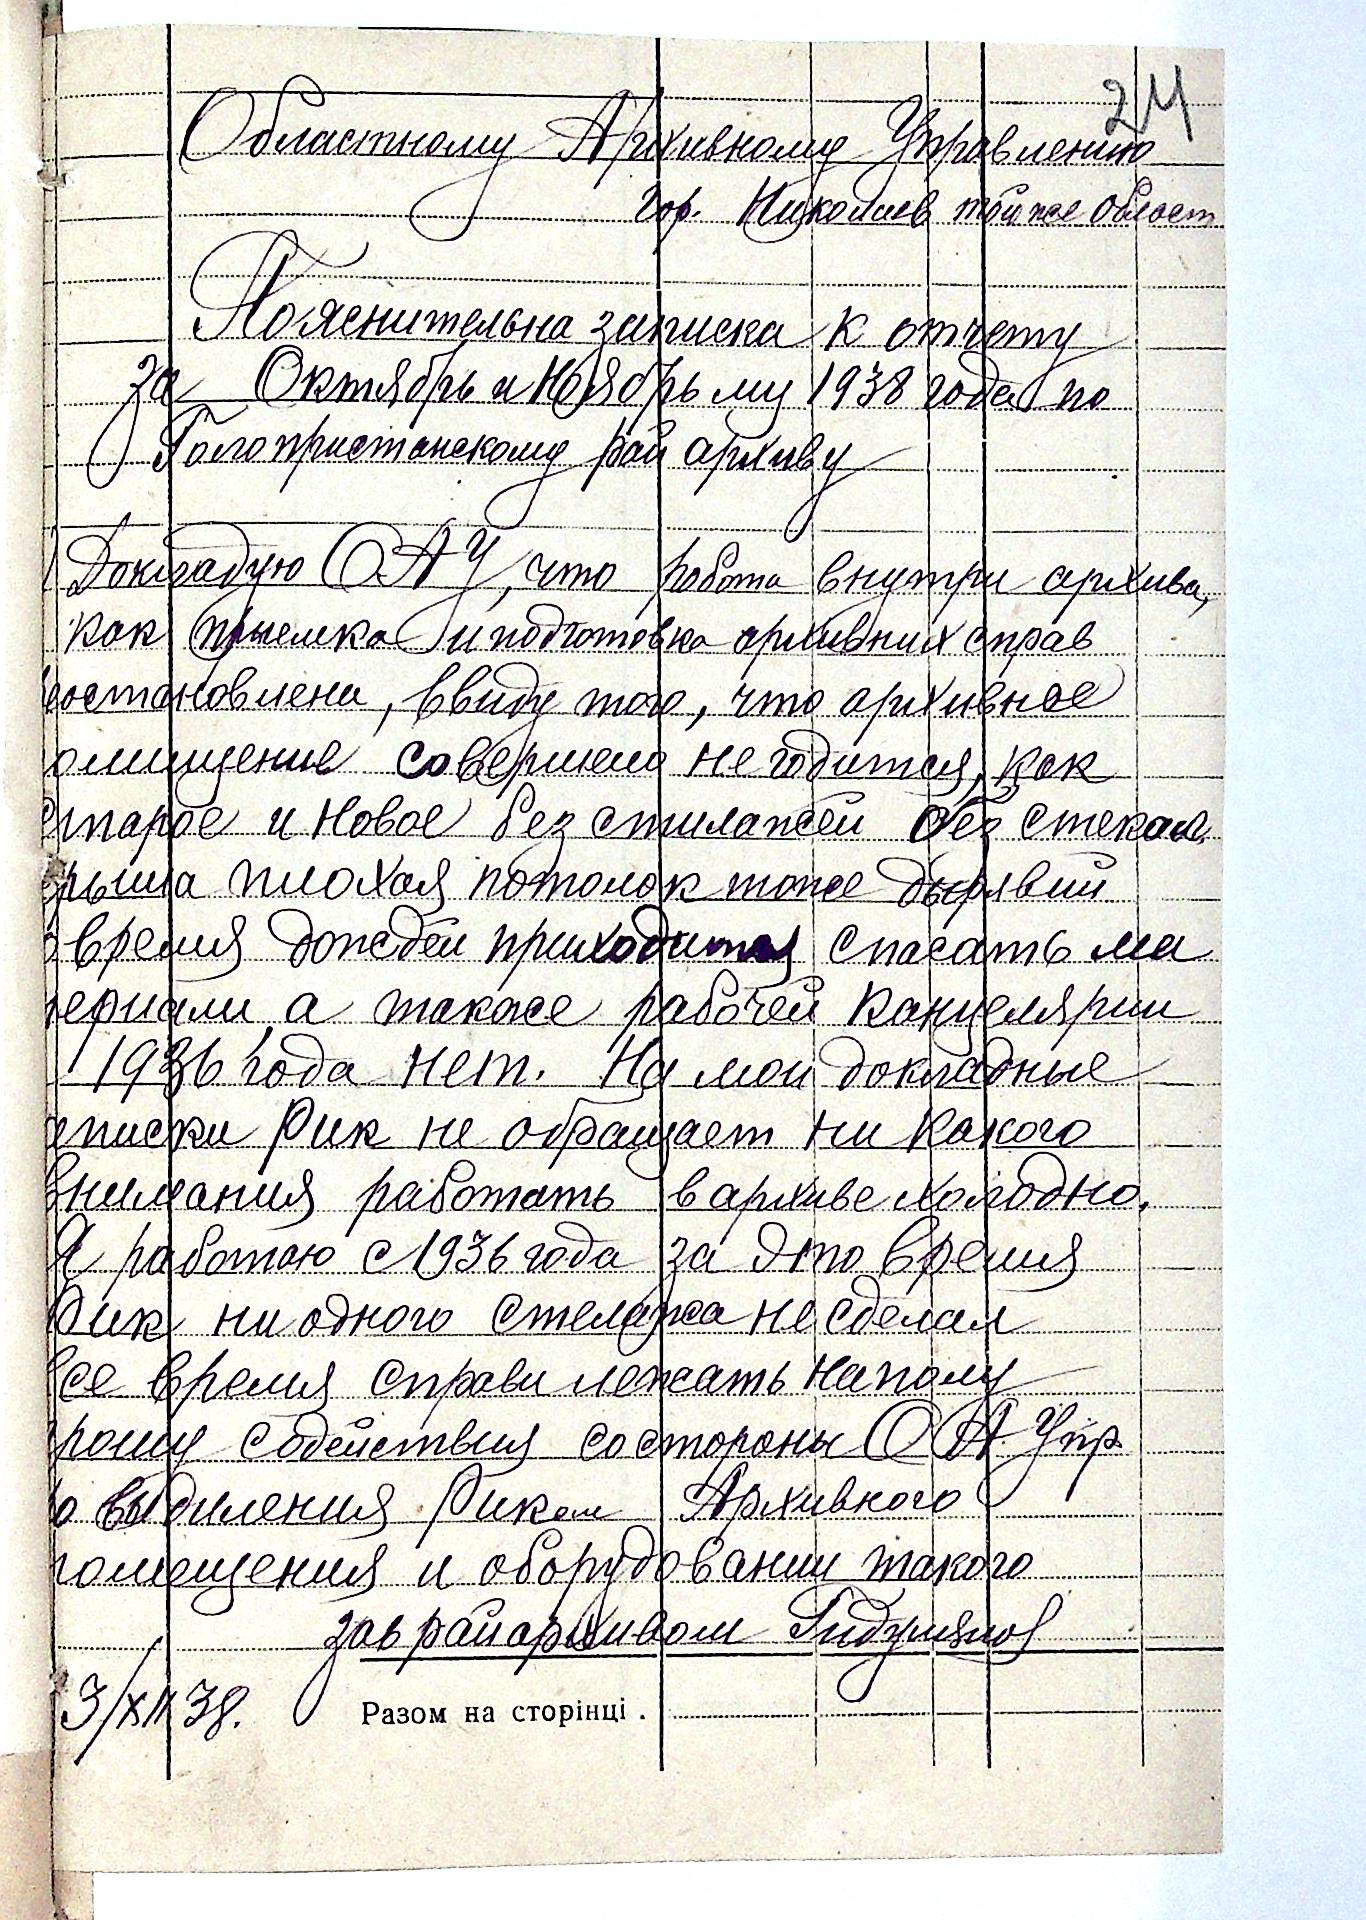 24
Областному Архивному Управлению
гор. Николаев той же област
Пояснительна записка к отчету
за Октябрь и Ноябрь мц 1938 года по
Голопристанскому рай архиву
Докладую О.А.У, что работа внутри архива,
как приемка и подготовка архивних справ
еостановлена, ввиду того, что архивное
омищение совершено не годится, как
старое и новое без стилажей без стекол
рыша плохая потолок тоже дырявий
время дождей приходится спасать ма
териали, а также рабочей канцелярии
1936 года нет. На мои докладные
аписки Рик не обращает ни какого
внимания работать в архиве холодно.
Я работаю с 1936 года за это время
Рик ни одного стелажа не сделал
все время справи лежать на полу
прошу содействия со стороны О А. Упр
о выдиления Риком Архивного
помещения и оборудовании такого
зав райархивом
3/XII 38.
Разом на сторінці .